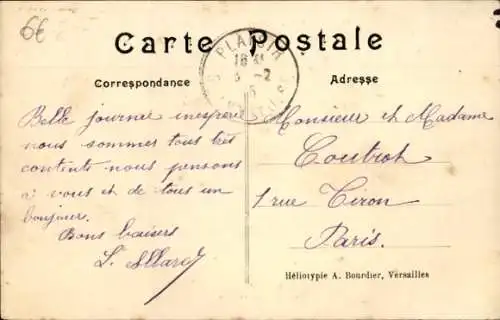 6€
Carte Postale
PLAISIR
Correspondance
Adresse
Belle journée inespérée
nous sommes tous très
contents nous pensons
à vous et de tous un
bonjour.
Bons baisers
L. Allard
Monsieur et Madame
Coutrot
1 rue Tiron
Paris.
Héliotypie A. Bourdier, Versailles